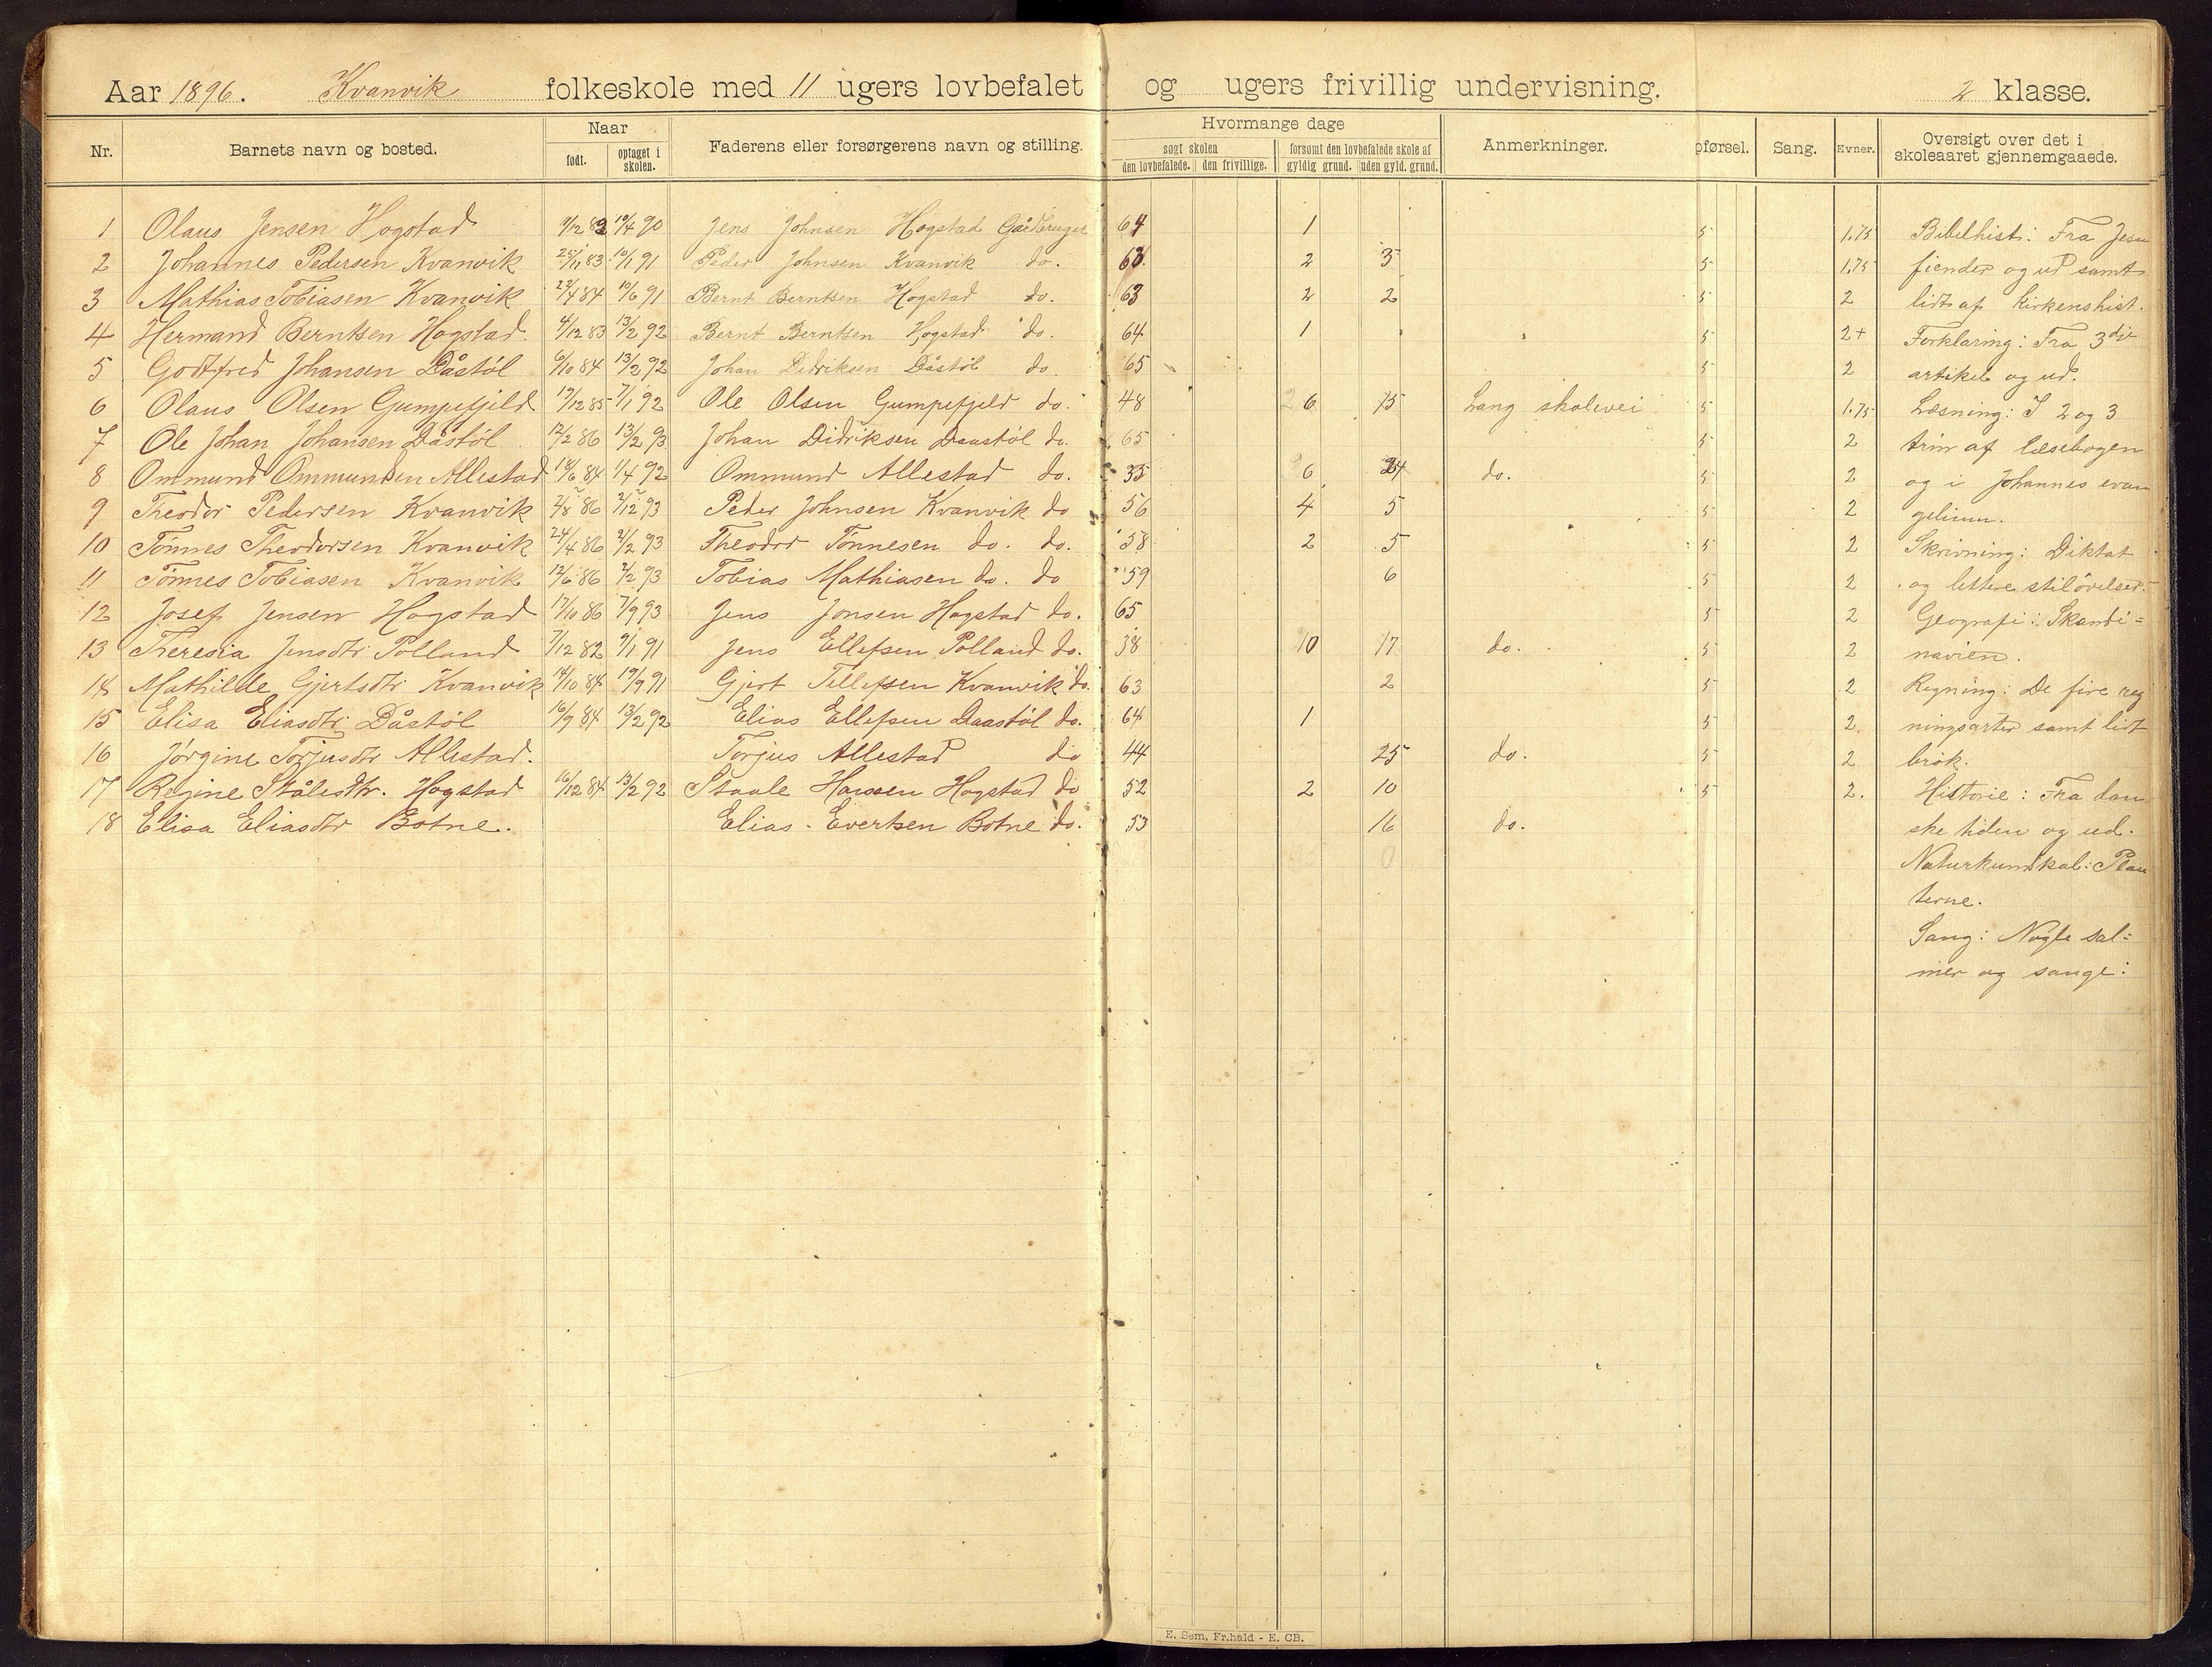 Aar 1896. Kvanvik folkeskole med 11 ugers lovbefalet og ugers frivillig undervisning. 2 klasse.
Nr. Barnets navn og bosted. Naar født. optaget i skolen. Faderens eller forsørgerens navn og stilling. Hvormange dage søgt skolen den lovbefalede. den frivillige. forsømt den lovbefalede skole af gyldig grund. uden gyld. grund. Anmerkninger. pførsel. Sang. Evner. Oversigt over det i skoleaaret gjennemgaaede.
1 Olaus Jensen Hogstad 10/4 90 Jens Johnsen Hogstad Gårdbruger 64 1 5 1.75 Bibelhist: Fra Jesu
2 Johannes Pedersen Kvanvik 25/11 83 10/1 91 Peder Johnsen Kvanvik do. 2 3 5 1.75 fiender og ud samt
3 Mathias Tobiasen Kvanvik 23/4 84 10/6 91 Bernt Berntsen Hogstad do. 63 2 2 5 2 lidt af kirkenshist.
4 Hermand Berntsen Hogstad. 4/12 83 13/2 92 Bernt Berntsen Hogstad do. 64 1 5 2+ Forklaring: Fra 3die
5 Godtfred Johansen Dåstöl 6/10 84 13/2 92 Johan Didriksen Dåstöl do. 65 5 2 artikel og ud.
6 Olaus Olsen Gumpefjeld 19/12 85 7/1 92 Ole Olsen Gumpefjeld do. 48 6 15 Lang skolevei 5 1.75 Læsning: I 2 og 3
7 Ole Johan Johansen Dåstöl 12/2 86 13/2 93 Johan Didriksen Daastöl do. 65 5 2 trin af læsebogen
8 Ommund Ommundsen Allestad 18/6 84 1/4 92 Ommund Allestad do. 35 6 24 do. 5 2 og i Johannes evan
9 Theodor Pedersen Kvanvik 2/8 86 2/12 93 Peder Johnsen Kvanvik do 56 4 5 5 2 gelium.
10 Tönnes Theodorsen Kvanvik 24/4 86 2/2 93 Theodor Tönnesen do. do. 58 2 5 5 2 Skrivning: Diktat
11 Tönnes Tobiasen Kvanvik 12/6 86 2/2 93 Tobias Mathiasen do. do 59 6 5 2 og lettere stilövelser.
12 Josef Jensen Hogstad 17/10 86 7/9 93 Jens Jonsen Hogstad do. 65 5 2 Geografi: Skandi=
13 Theresia Jensdtr Polland 7/12 82 9/1 91 Jens Ellefsen Polland do. 38 10 17 do. 5 2 navien.
14 Mathilde Gjertsdtr Kvanvik 14/10 84 19/9 91 Gjert Tellefsen Kvanvik do. 63 2 5 2 Regning: De fire reg
15 Elisa Eliasdtr Dåstöl 16/9 84 13/2 92 Elias Ellefsen Daastöl do. 64 1 5 2. ningsarter samt lidt
16 Jörgine Torjusdtr Allestad. Torjus Allestad do 44 25 do. 5 2 brök.
17 Regine Ståledtr. Hogstad 16/12 84 13/2 92 Staale Hansen Hogstad do 52 2 10 5 2. Historie: Fra dan
18 Elisa Eliasdtr Botne. Elias Evertsen Botne do. 53 16 do. ske tiden og ud.
Naturkundskab: Plan
terne.
Sang: Nogle sal=
mer og sange.
E. Sem, Fr.hald - E. CB.